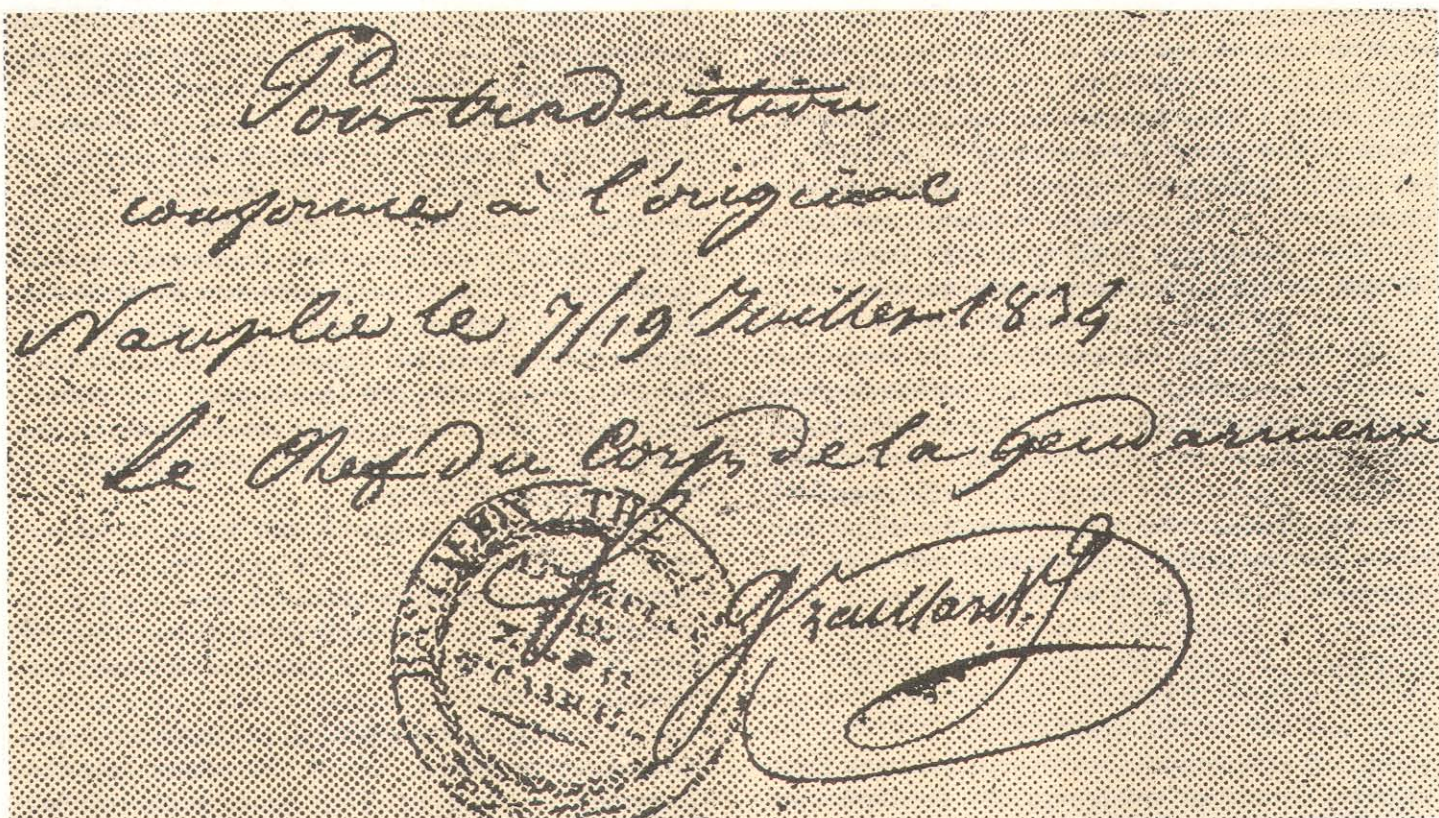 Pour traduction
conforme à l'original
Nauplie le 7/19 Juillet 1834
Le Chef du Corps de la gendarmerie
ΒΑΣΙΛΕΙΑ ΤΗΣ